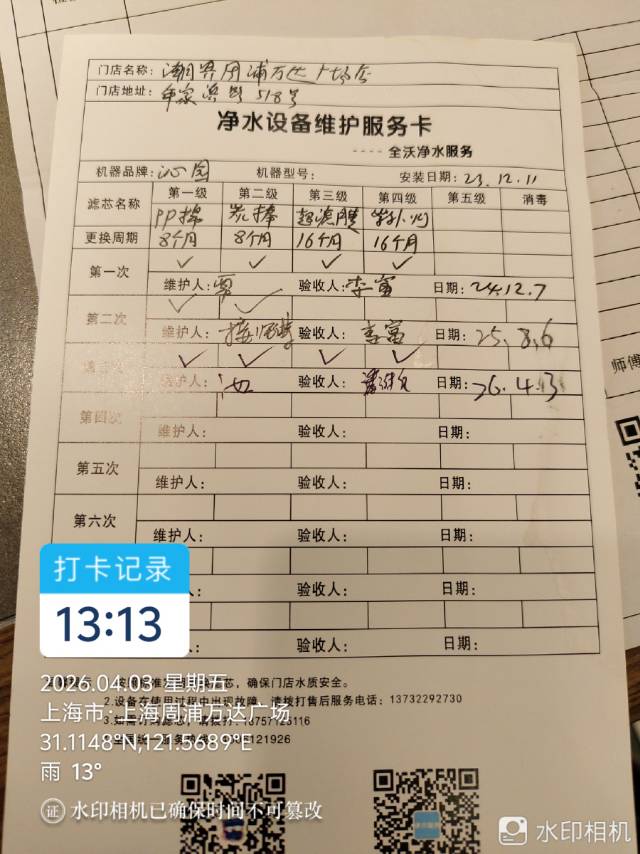 门店名称：潮界周浦万达广场店
门店地址：年家浜路518号
净水设备维护服务卡
----全沃净水服务
机器品牌：沁园 机器型号： 安装日期：23.12.11
滤芯名称 第一级 第二级 第三级 第四级 第五级 消毒
PP棉 炭棒 超滤膜
更换周期 8个月 8个月 16个月 16个月
第一次 ✓ ✓ ✓ ✓
维护人： 验收人：李富 日期：24.12.7
第二次 ✓ ✓
维护人： 验收人：李富 日期：25.8.6
✓ ✓ ✓ ✓
维护人： 验收人： 日期：26.4.3
第四次
维护人： 验收人： 日期：
第五次
维护人： 验收人： 日期：
第六次
维护人： 验收人： 日期：
验收人： 日期：
验收人： 日期：
芯，确保门店水质安全。
2.设备在使用过程中出现故障，请拨打售后服务电话：13732292730
师傅
打卡记录
13:13
2026.04.03 星期五
上海市·上海周浦万达广场
31.1148°N,121.5689°E
雨 13°
证 水印相机已确保时间不可篡改
水印相机